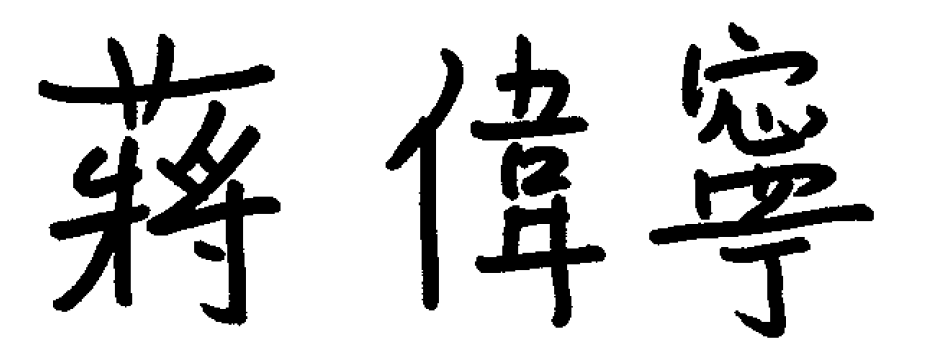 蔣偉寧